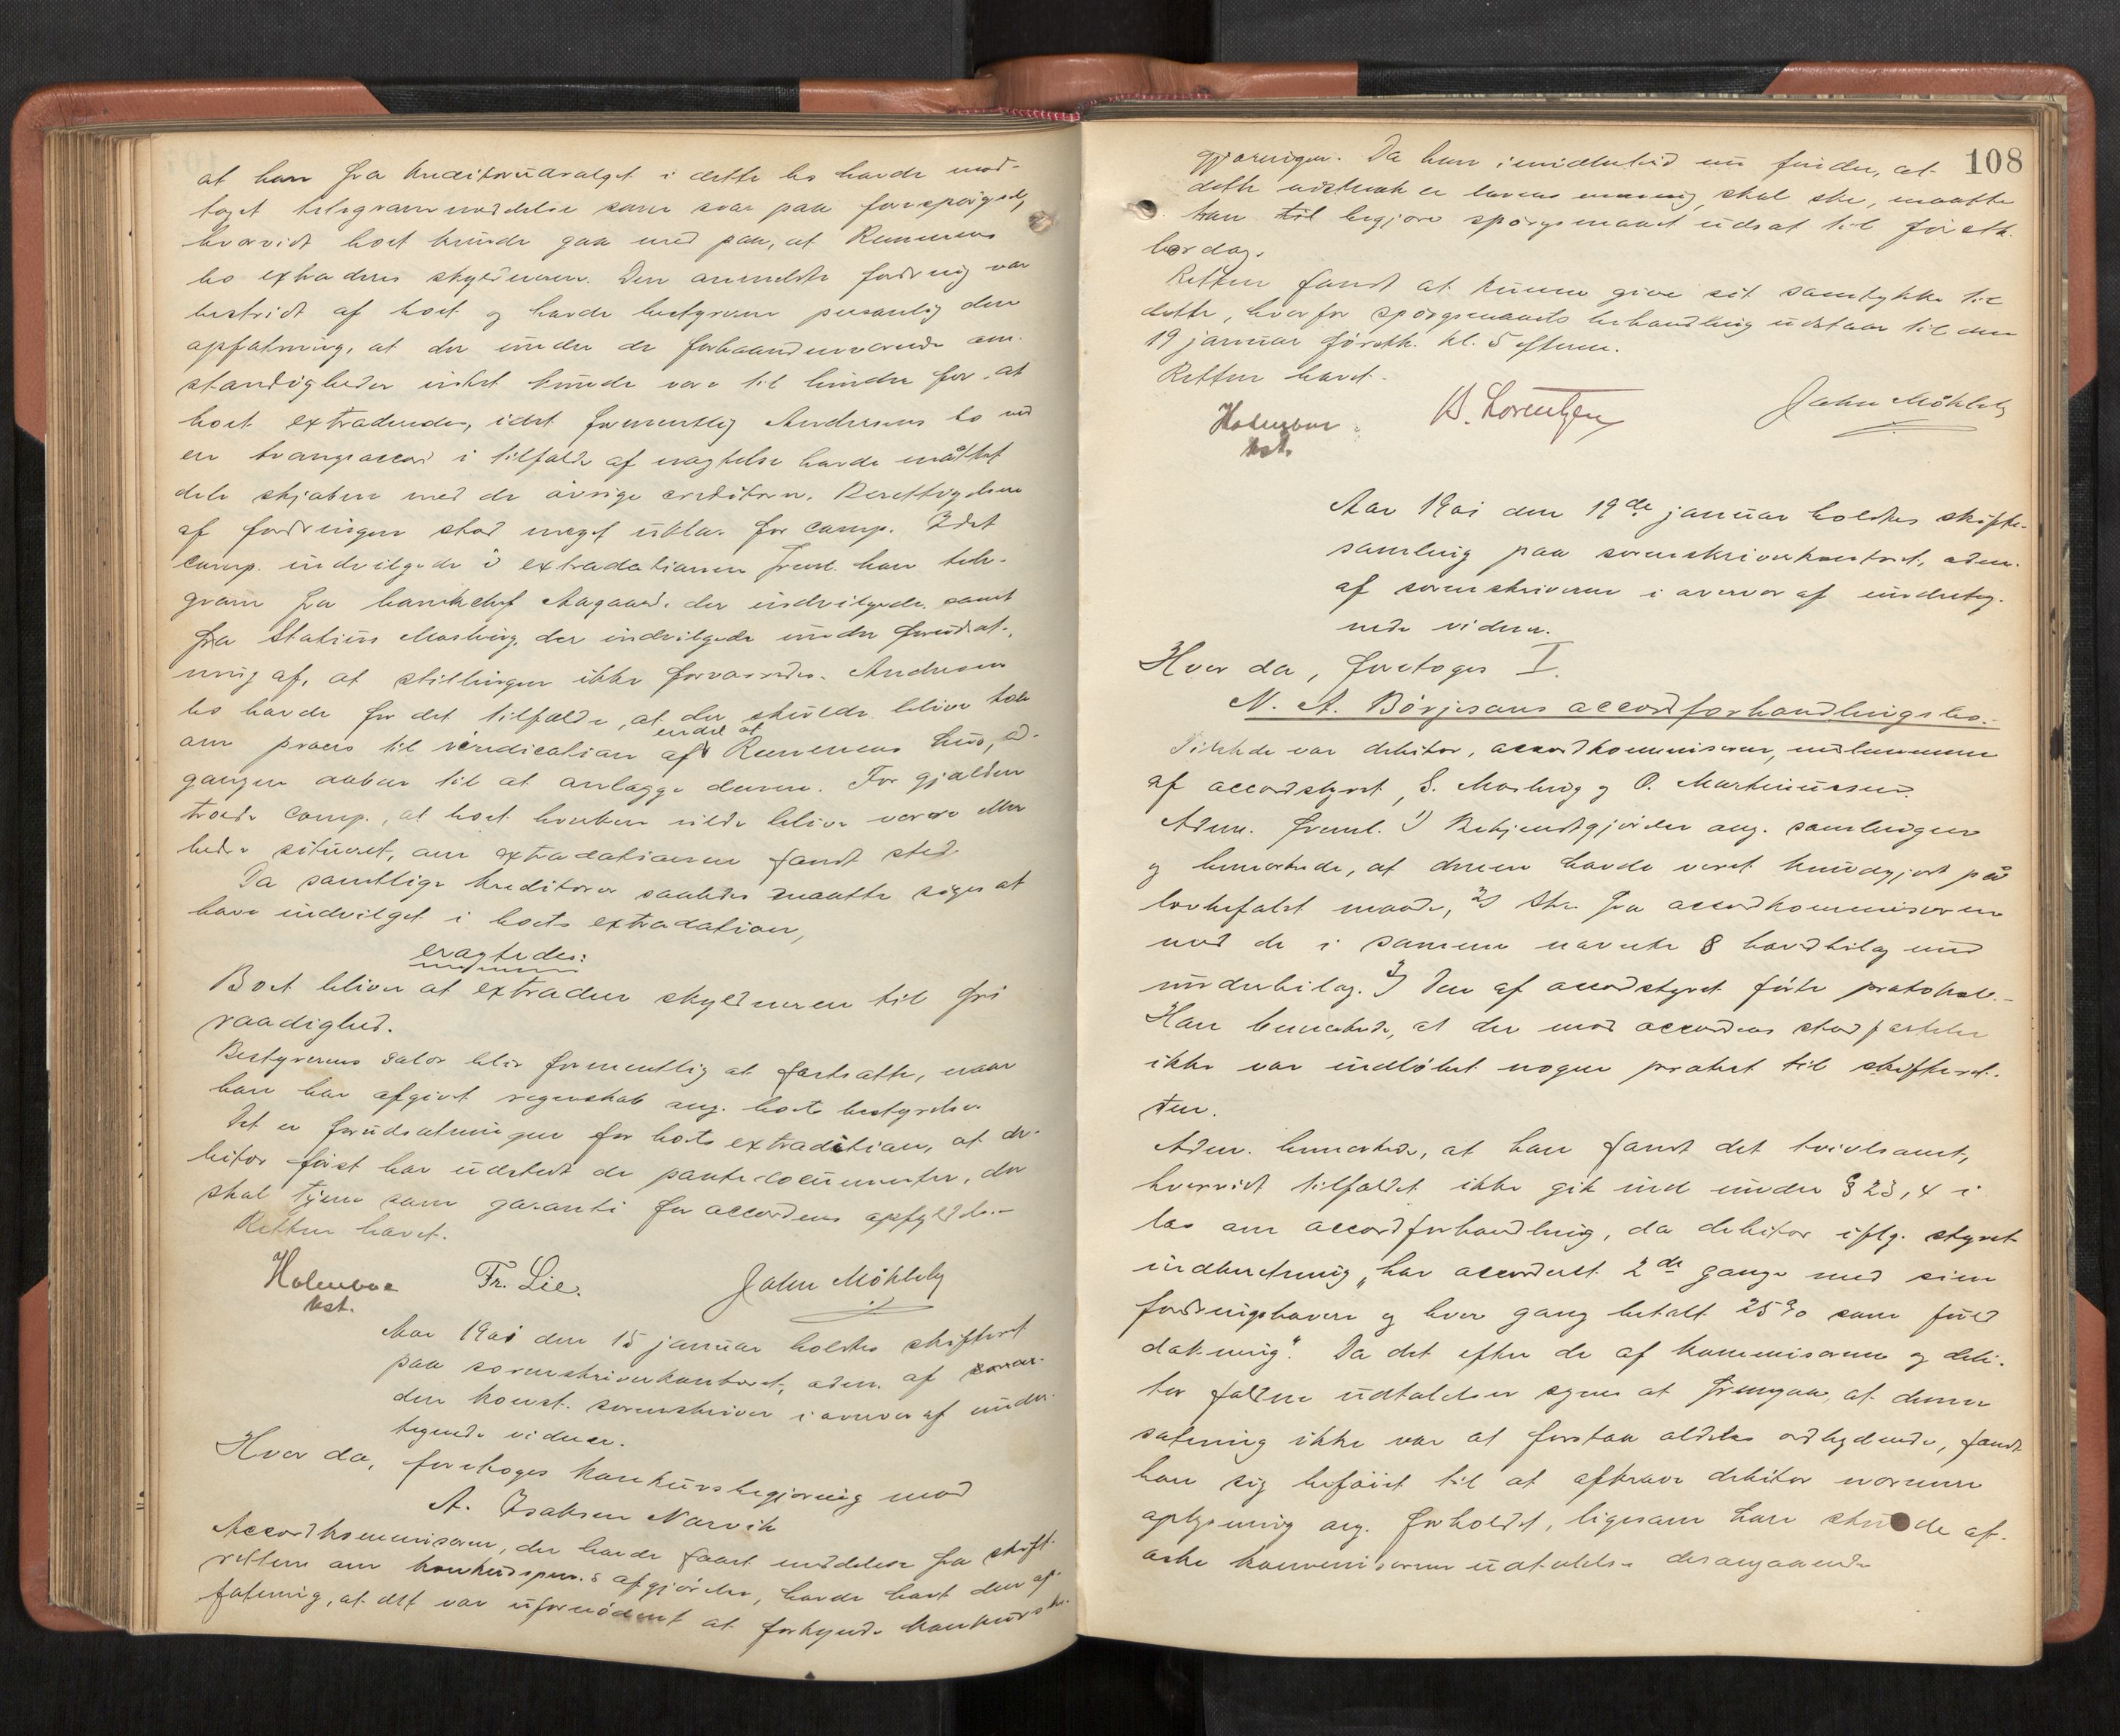 at han fra kreditorudvalget i dette bo havde mod-
taget telegrammeddelse som svar paa forespørgsel,
hvorvidt boet kunde gaa med paa, at Rummens
bo extraderes skyldneren. Den anmeldte fordring var
bestridt af boet og havde bestyreren personlig den
opfatning, at der under de forhaandenværende om-
stændigheder intet kunde være til hinder for at
boet extraderedes, idet formentlig Andersens bo ved
en tvangsaccord i tilfælde af negtelse havde måttet
dele skjæbne med de øvrige creditorer. Berettigelsen
af fordringen stod meget uklar for comp. Idet
comp. indvilgede i extradationen freml. han tele-
gram fra bankchef Aagaard, der indvilgede samt
fra Statius Mosling, der indvilgede under forudsæt-
ning af, at stillingen ikke forværredes. Andersens
bo havde for det tilfælde, at der skulde blive tale
om proces til vindication af endel af Rummens hus, ad-
gangen aaben til at anlægge denne. For gjælden
troede comp., at boet hverken vilde blive værre eller
bedre situeret, om extradationen fandt sted.
Da samtlige kreditorer saaledes maatte siges at
have indvilget i boets extradation,
eragtedes:
Boet bliver at extradere skyldneren til fri
raadighed.
Bestyrerens salær blir formentlig at fastsætte, naar
han har afgivet regnskab ang. boets bestyrelse.
Det er forudsætningen for boets extradition, at de-
bitor først har udstedt de pantedocumenter, der
skal tjene som garanti for accordens opfyldelse.-
Retten hævet.
Holmboe Fr. Lie. John Möhlely
kst.
Aar 1901 den 15 januar holdtes skifteret
paa sorenskriverkontoret, adm. af
den konst. sorenskriver i overvær af under-
tegnede vidner.
Hvor da, foretoges konkursbegjæring mod
A. Isaksen Narvik
Accordkommissæren, der havde faaet meddelelse fra skift-
retten om afgjørelse, havde havt den op-
fatning, at det var ufornødent at forkynde konkursbe-
108
gjæringen. Da han imidlertid nu finder, at
dette er lovens mening, skal ske, maatte
han begjære spørgsmaalet udsat til førstk.
lørdag.
Retten fandt at kunne give sit samtykke til
dette, hvorfor spørgsmaalets behandling udstaar til den
19 januar førstk. kl. 5 efterm.
Retten hævet.
Holmboe B. Lorentzen John Möhlely
kst.
Aar 1901 den 19de januar holdtes skifte-
samling paa sorenskriverkontoret, adm.
af sorenskriveren i overvær af underteg-
nede vidner.
Hvor da, foretoges I.
N. A. Börjesons accordforhandlingsbo.-
Tilstede var debitor, accordkommissæren, medlemmene
af accordstyret, S. Mosling og O. Martinussen.
Adm. freml. 1) Bekjendtgjørelse ang. samlingen
og bemærkede, at denne havde været kundgjort på
lovbefalet maade, 2) Skr. fra accordkommissæren
med de i samme nævnte 8 hovedbilag med
underbilag. 3) Den af accordstyret førte protokol.-
Han bemærkede, at der mod accordens stadfæstelse
ikke var indløbet nogen protest til skifteret-
ten.
Adm. bemærkede, at han fandt det tvivlsomt,
hvorvidt tilfældet ikke gik ind under § 23, 4 i
lov om accordforhandling, da debitor iflg. styrets
indberetning "har accorderet 2de gange med sine
fordringshavere og hver gang betalt 25% som fuld
dækning". Da det efter de af kommissæren og debi-
tor faldne udtalelser synes at fremgaa, at denne
sætning ikke var at forstaa aldeles ordlydende, fandt
han sig beføiet til at afkræve debitor nærmere
oplysning ang. forholdet, ligesom han skulde af-
æske kommissæren udtalelse desangaaende